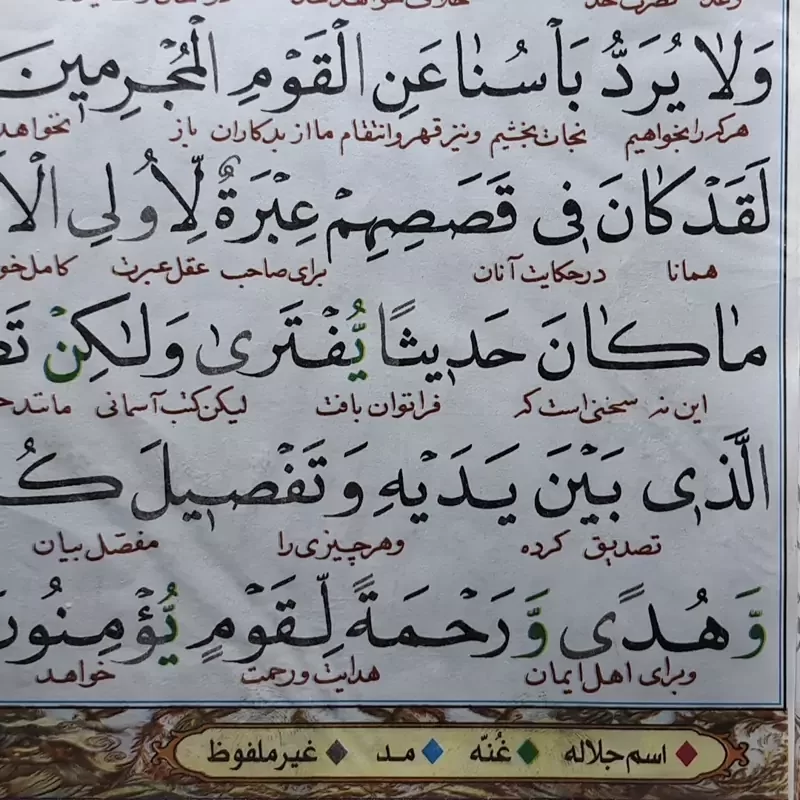 وَلَا يُرَدُّ بَأْسُنَا عَنِ الْقَوْمِ الْمُجْرِمِينَ
هرکه را بخواهیم نجات بخشیم ونیز قهر وانتقام ما از بدکاران باز نخواهد
لَقَدْ كَانَ فِي قَصَصِهِمْ عِبْرَةٌ لِّأُولِي
همانا در حکایت آنان برای صاحب عقل عبرت کامل
مَا كَانَ حَدِيثًا يُّفْتَرَىٰ وَلَـٰكِنْ
این نه سخنی است که فرا توان بافت لیکن کتب آسمانی مانند
الَّذِي بَيْنَ يَدَيْهِ وَتَفْصِيلَ
تصدیق کرده وهرچیزی را مفصّل بیان
وَّهُدًى وَّرَحْمَةً لِّقَوْمٍ يُّؤْمِنُونَ
وبرای اهل ایمان هدایت ورحمت خواهد
اسم جلاله غُنّه مـد غیر ملفوظ